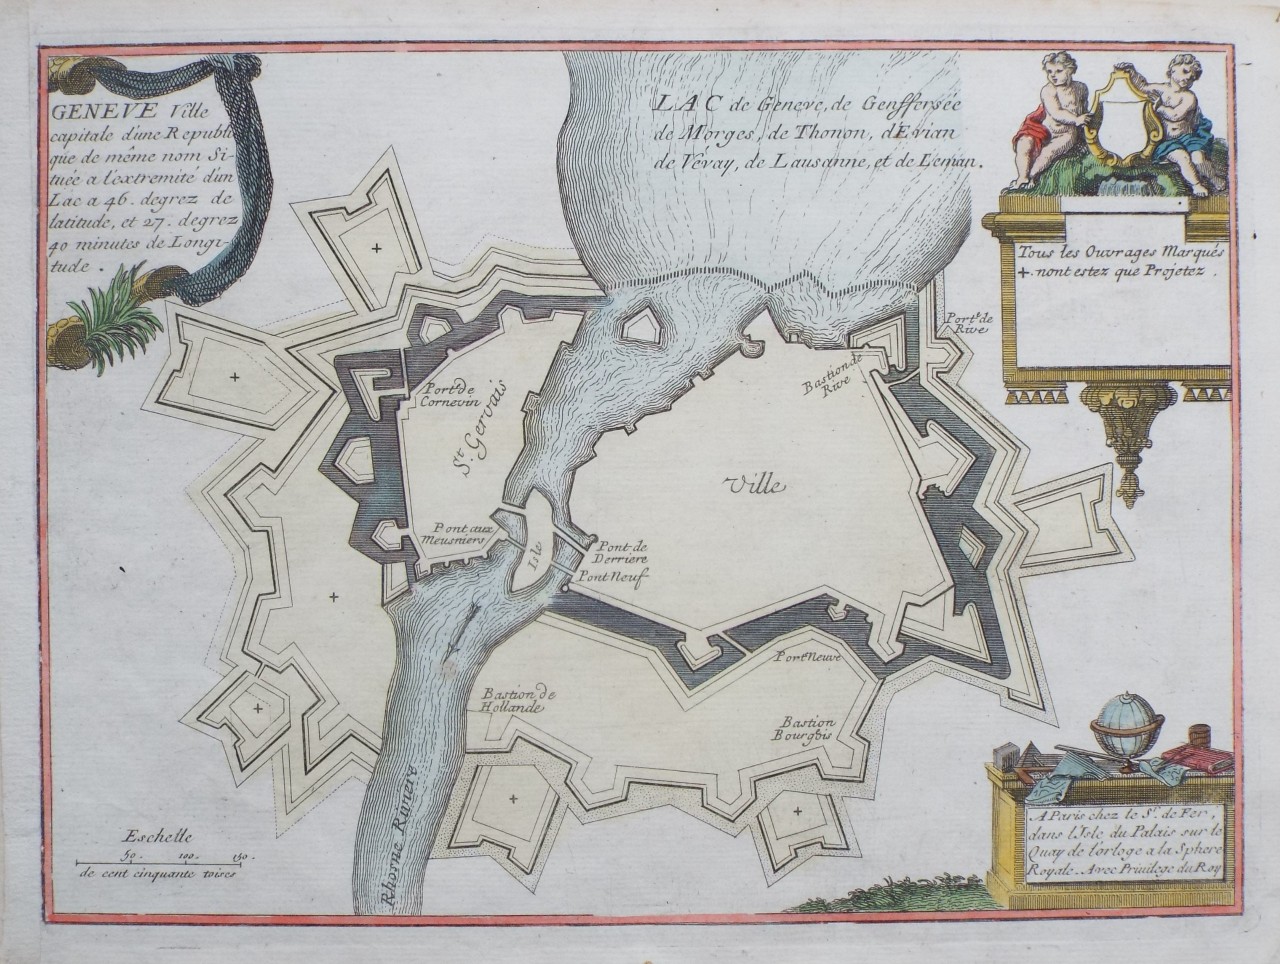 GENEVE Ville
capitale d'une Republi
que de même nom Si-
tuée a l'extremité d'un
Lac a 46. degrez de
latitude, et 27. degrez
40 minutes de Longi-
tude.
LAC de Geneve, de Genffersée
de Morges, de Thonon, d'Evian
de Vévay, de Lausanne, et de Leman.
Tous les Ouvrages Marqués
+. nont estez que Projetez.
Port.e de
Rive
Bastion de
Rive
Port.de
Cornevin
S.t Gervais
Ville
Pont aux
Meusniers
Isle
Pont de
Derriere
Pont Neuf
Port.e Neuve
Bastion de
Hollande
Bastion
Bourgois
Rhosne Riviere
Eschelle
50. 100. 150.
de cent cinquante toises
A Paris chez le S.r de Fer,
dans l'Isle du Palais sur le
Quay de l'orloge a la Sphere
Royale. Avec Privilege du Roy